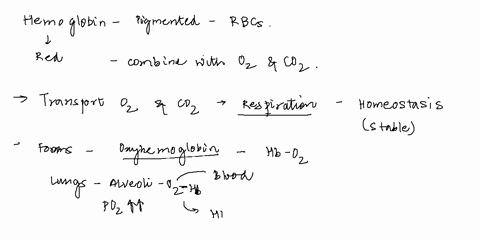 Hemoglobin - Pigmented - RBCs.
↓
Red - combine with O2 & CO2.
→ Transport O2 & CO2 → Respiration - Homeostasis
(stable)
- Forms - Oxyhemoglobin - Hb-O2
Lungs - Alveoli - O2-Hb Blood
PO2 ↑↑ HI